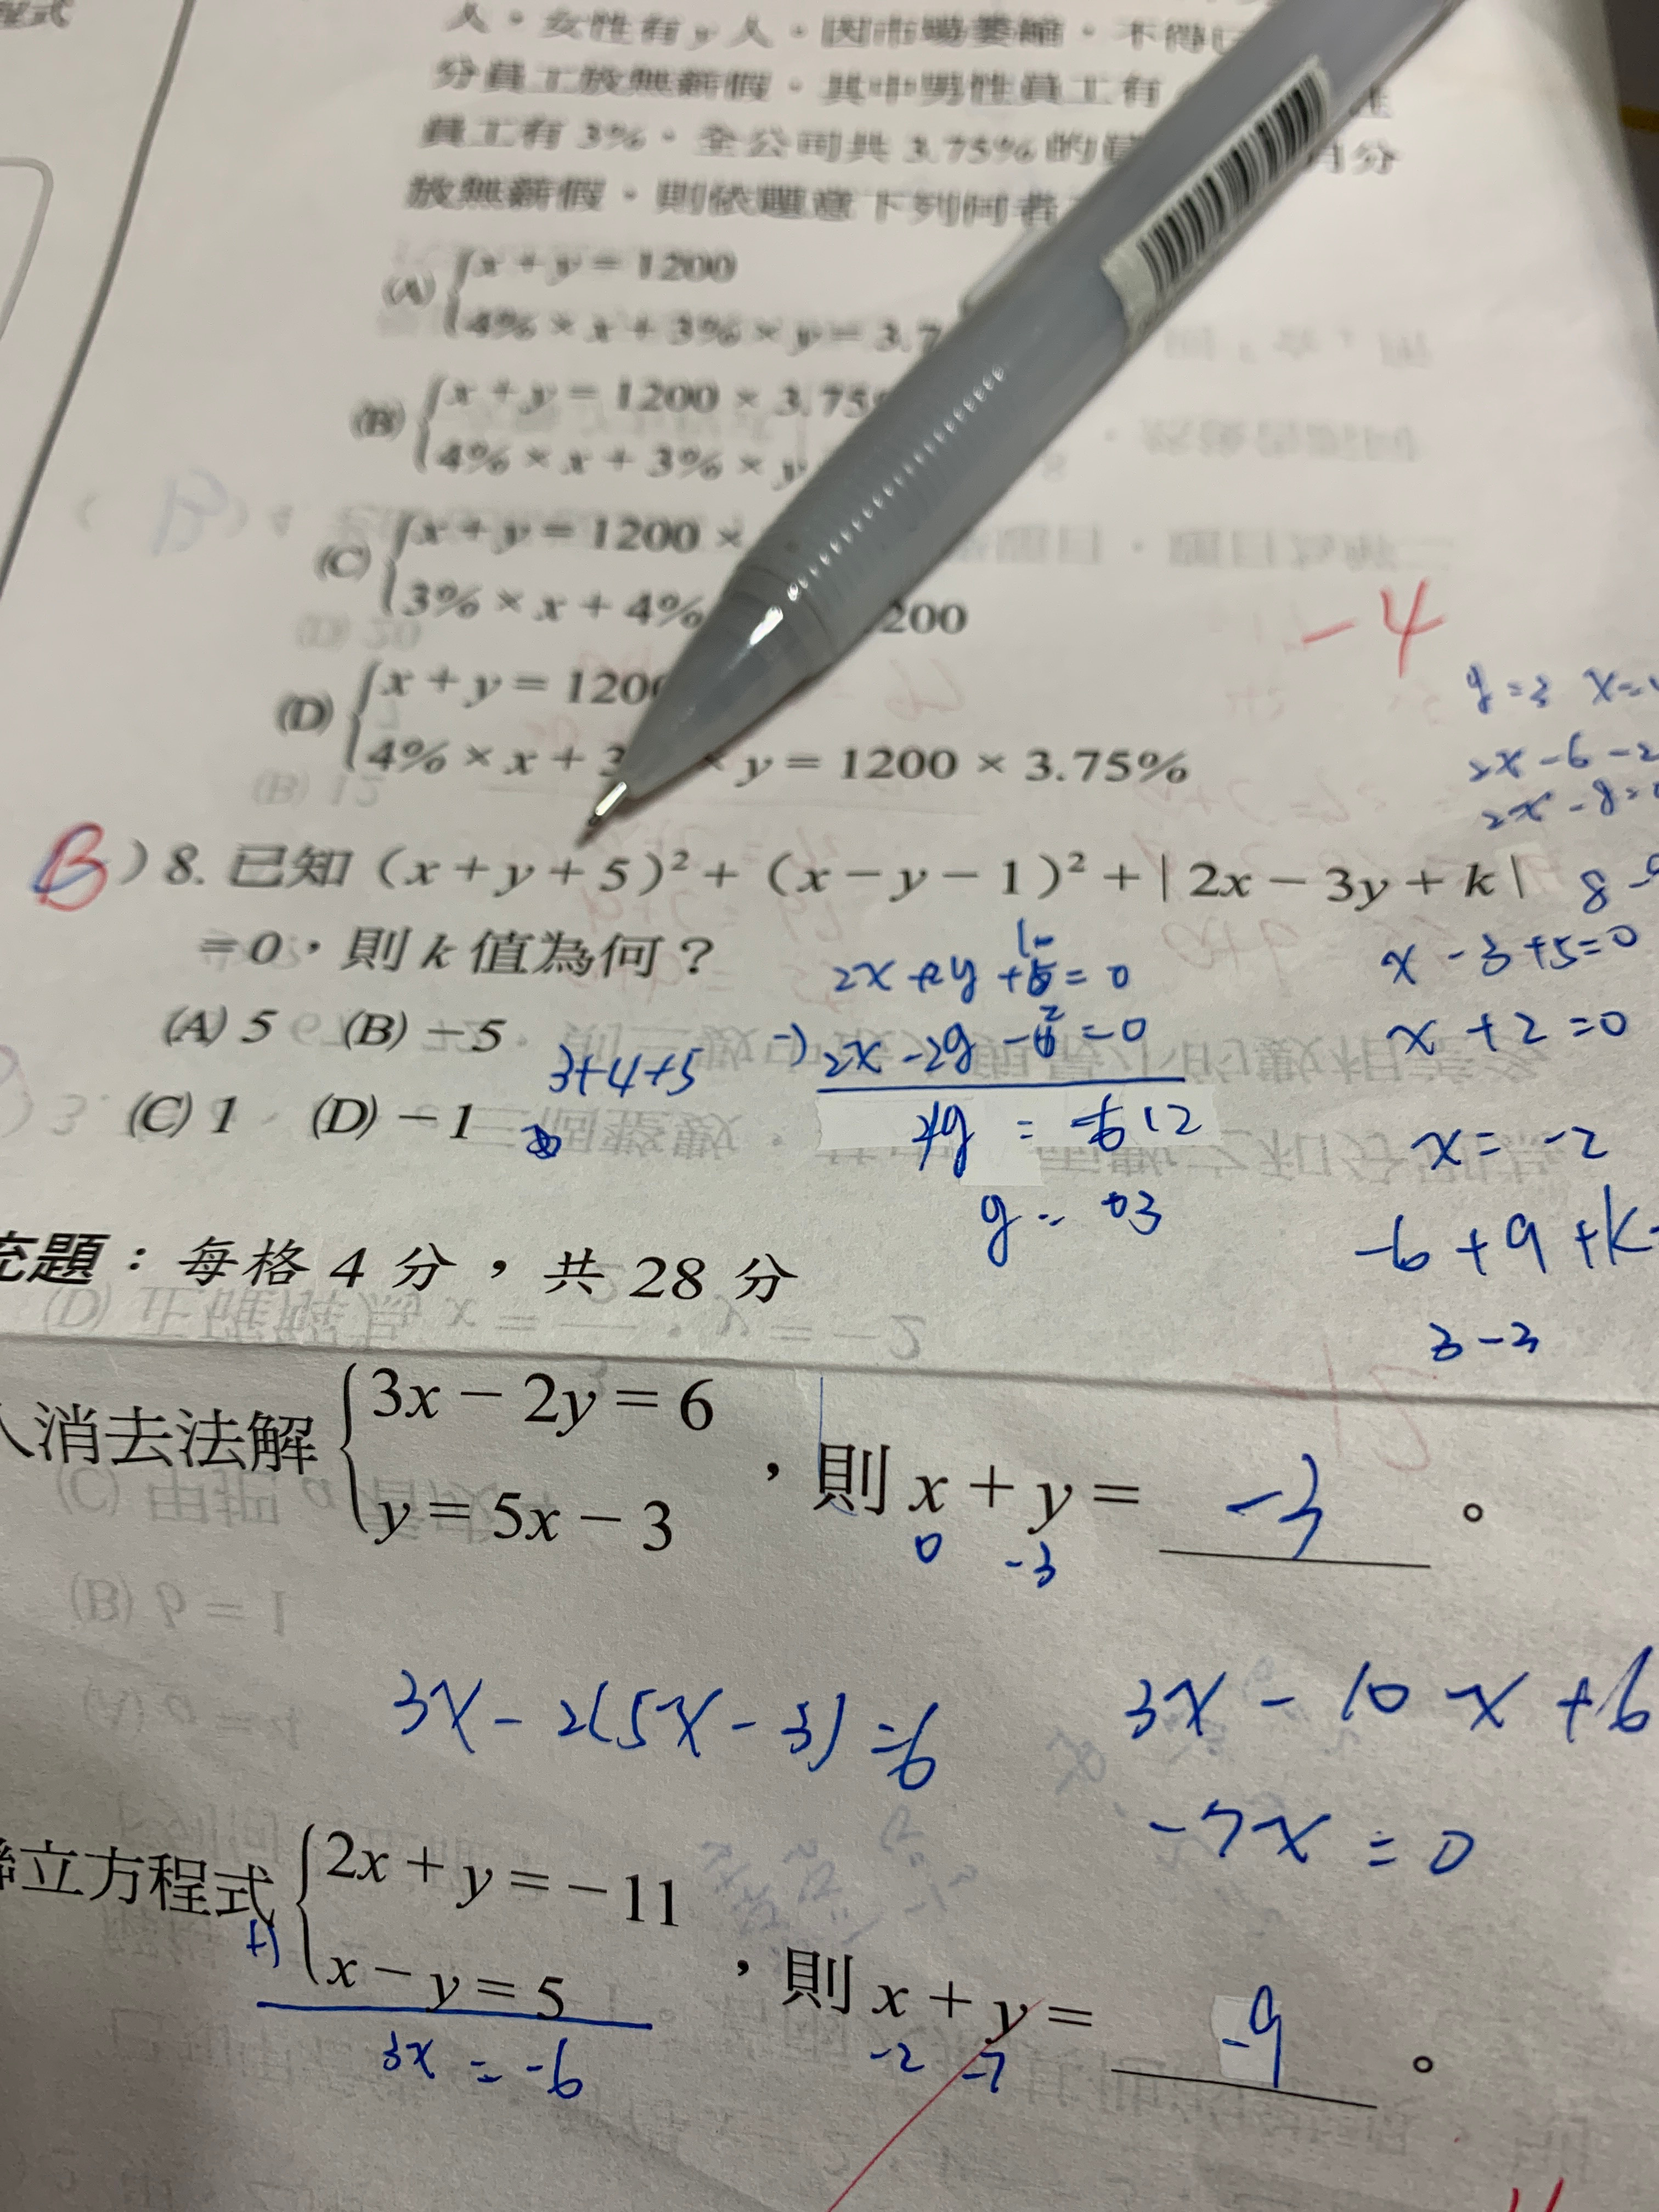 程式
人，女性有 y 人，因市場萎縮，不得已
分員工放無薪假，其中男性員工有
員工有 3%，全公司共 3.75% 的 月分
放無薪假，則依題意下列何者
(A) { x + y = 1200
4% × x + 3% × y = 3.7
(B) { x + y = 1200 × 3.75%
4% × x + 3% × y
(C) { x + y = 1200 ×
3% × x + 4% 200
(D) { x + y = 1200
4% × x + 3 × y = 1200 × 3.75%
-4
y = 3 x =
2x - 6 - 2
2x - 8 =
B ) 8. 已知 (x + y + 5)² + (x - y - 1)² + | 2x - 3y + k |
= 0，則 k 值為何？
(A) 5 (B) -5
(C) 1 (D) -1
3+4+5
2x + 2y + 10 = 0
-) 2x - 2y - 2 = 0
4y = -12
y = -3
8 -
x - 3 + 5 = 0
x + 2 = 0
x = -2
-6 + 9 + k
3 - 3
充題：每格 4 分，共 28 分
入消去法解 { 3x - 2y = 6
y = 5x - 3 ，則 x + y = -3 。
0 -3
3x - 2(5x - 3) = 6
3x - 10x + 6
-7x = 0
聯立方程式 { 2x + y = -11
+) x - y = 5 ，則 x + y = -9 。
3x = -6
-2 -7